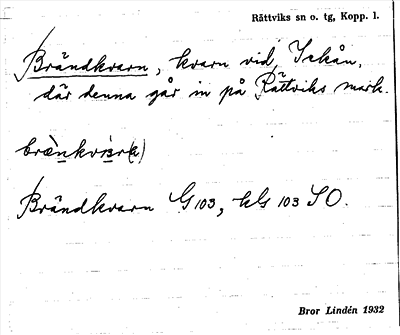 Rättviks sn o. tg, Kopp. l.
Brändkvarn, kvarn vid
där denna går in på Rättviks mark.
Brändkvarn G 103, kls 103 SO.
Bror Lindén 1932